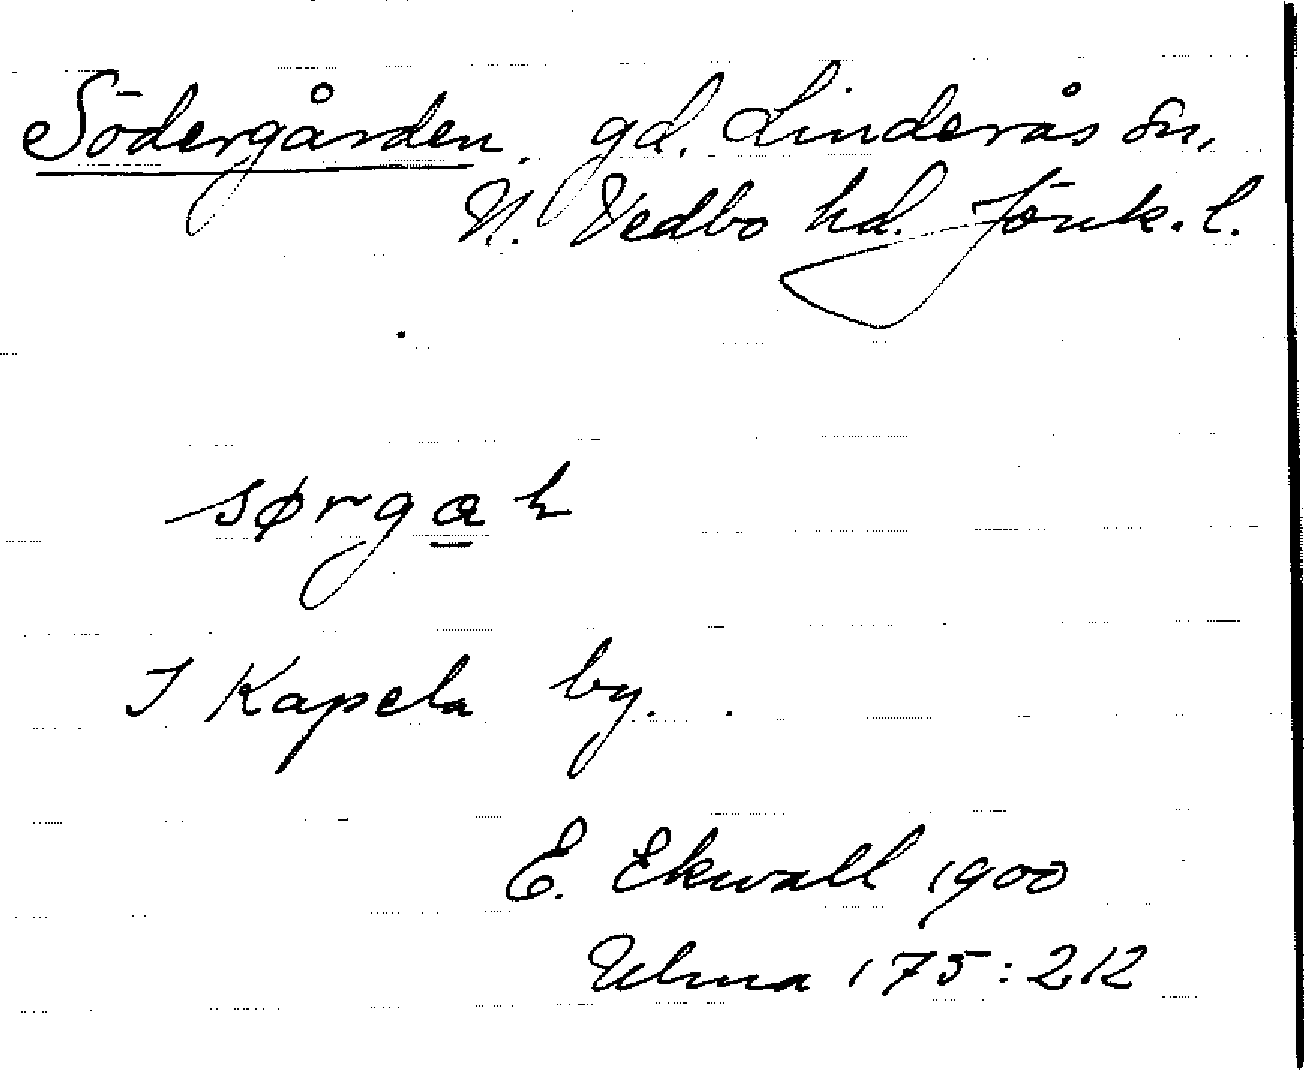 Södergården. gd. Linderås sn,
N. Vedbo hd. Jönk. l.
I Kapela by.
E. Ekwall 1900
Ulma 175:212